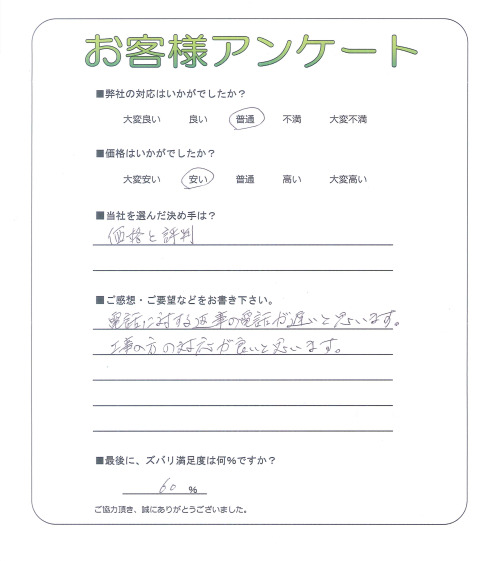 お客様アンケート
■弊社の対応はいかがでしたか？
大変良い 良い 普通 不満 大変不満
■価格はいかがでしたか？
大変安い 安い 普通 高い 大変高い
■当社を選んだ決め手は？
価格と評判
■ご感想・ご要望などをお書き下さい。
電話に対する返事の電話が遅いと思います。
工事の方の対応が良いと思います。
■最後に、ズバリ満足度は何%ですか？
60 %
ご協力頂き、誠にありがとうございました。